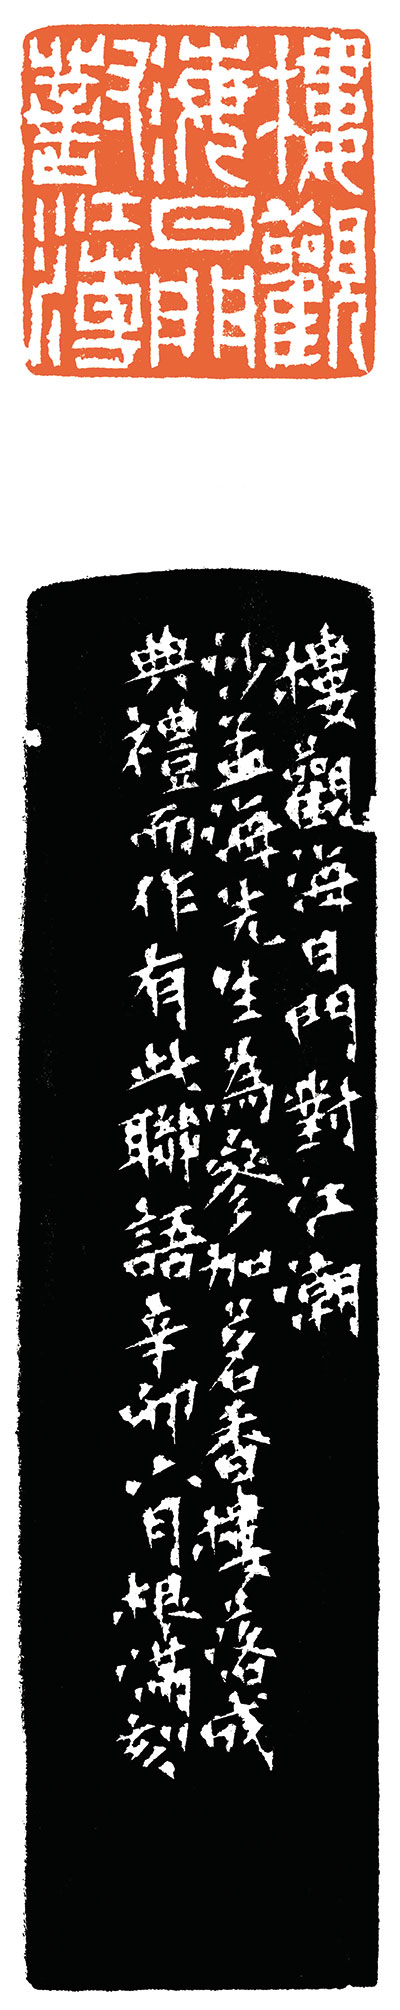 樓觀
海日門
對江潮
樓觀海日門對江潮
沙孟海先生為參加茗香樓之落成
典禮而作有此聯語辛卯六月根滿刻